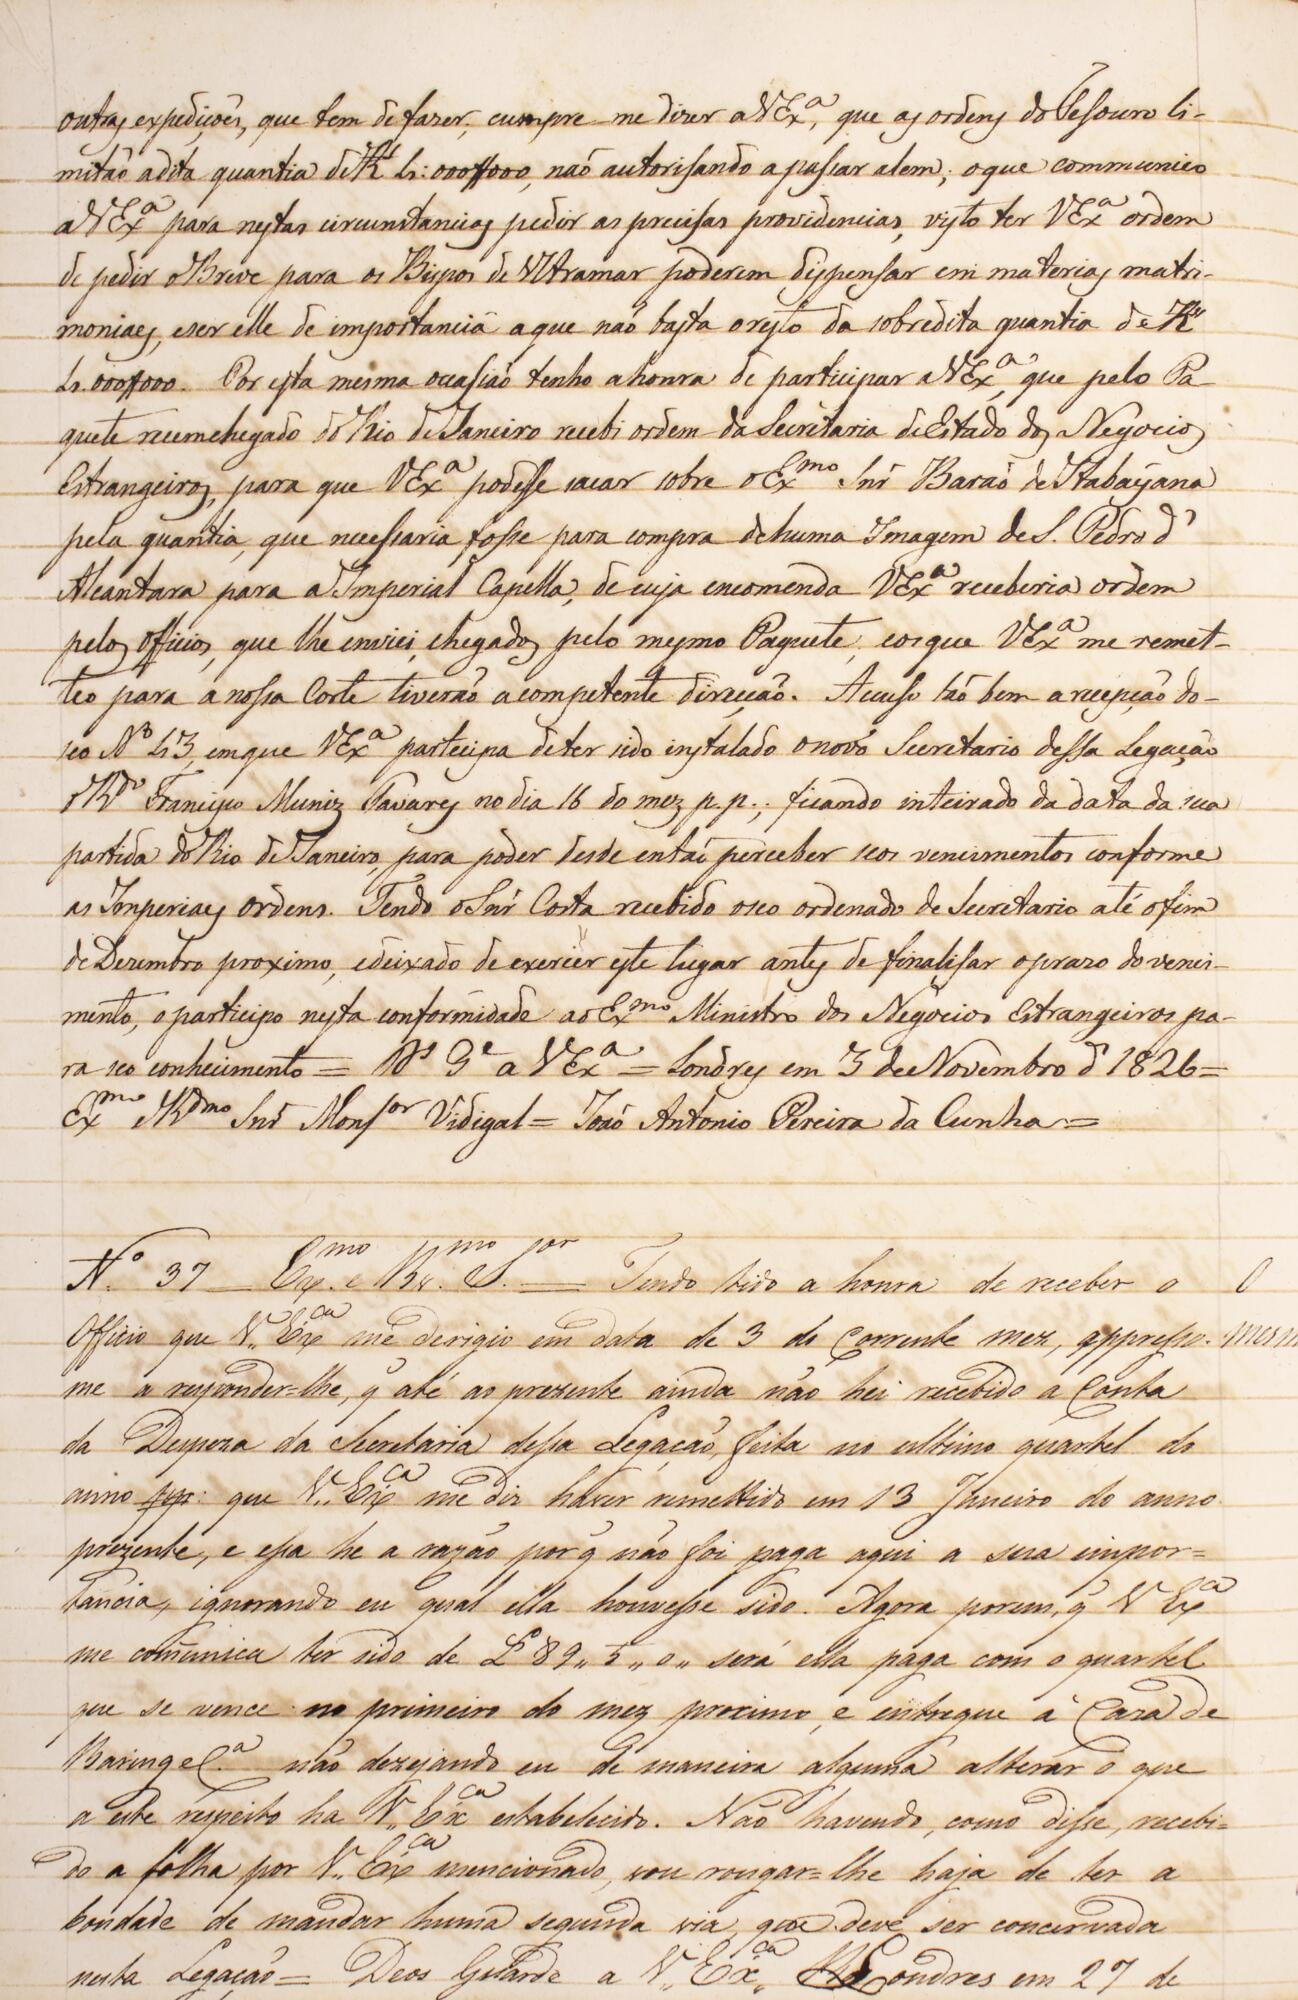 outras expedições, que tem de fazer, cumpre-me dizer a VExª, que as ordens do Tesouro li-
mitão a dita quantia de Rs 4:000$000, não autorisando a passar alem; o que communico
a VExª para nestas circunstancias pedir as precisas providencias, visto ter VExª ordem
de pedir o Breve para os Bispos de Ultramar poderem dispensar em materias matri-
moniaes, e ser elle de importancia a que não basta o resto da sobredita quantia de Rs
4:000$000. Por esta mesma occasião tenho a honra de participar a VExª, que pelo Pa-
quete recemchegado do Rio de Janeiro recebi ordem da Secretaria de Estado dos Negocios
Estrangeiros, para que VExª podesse sacar sobre o Exmo Snr Barão de Itabayana
pela quantia, que necessaria fosse para compra de huma Imagem de S. Pedro d'
Alcantara para a Imperial Capella, de cuja encomenda VExª receberia ordem
pelos officios, que lhe enviei, chegados pelo mesmo Paquete, e os que VExª me remet-
teo para a nossa Corte tiverão a competente direcção. Accuso tão bem a recepção do
seo Nº 43, em que VExª partecipa de ter sido instalado o novo Secretario dessa Legação
o Rdo Francisco Muniz Tavares no dia 16 do mez p.p.; ficando inteirado da data da sua
partida do Rio de Janeiro, para poder desde então perceber seos vencimentos conforme
as Imperiaes Ordens. Tendo o Snr Costa recebido o seo ordenado de Secretario até o fim
de Dezembro proximo, e deixado de exercer este lugar antes de finalisar o prazo do venci-
mento, o participo nesta conformidade ao Exmo Ministro dos Negocios Estrangeiros pa-
ra seo conhecimento = Ds Ge a VExª = Londres em 3 de Novembro d' 1826 =
Exmo Rdmo Snr Monsor Vidigal = João Antonio Pereira da Cunha =
Nº 37 — Exmo e Rmo Sor — Tendo tido a honra de receber o
Officio que V. Exca me derigio em data de 3 do corrente mez, appresso- mesm
me a responder-lhe, q̃ até ao prezente ainda não hei recebido a Conta
da Despeza da Secretaria dessa Legação, feita no ultimo quartel do
anno pp: que V. Exca me diz haver remettido em 13 Janeiro do anno
prezente, e essa he a razão por q̃ não foi paga aqui a sua impor=
tancia, ignorando eu qual ella houvesse sido. Agora porem, q̃ V Exca
me comunica ter sido de £ 89,, 5,, 0,, será ella paga com o quartel
que se vence no primeiro do mez proximo, e entregue á Caza de
Baring e Cª não dezejando eu de maneira alguma alterar o que
a este respeito ha V. Exca estabelecido. Não havendo, como disse, recebi=
do a folha por V. Exca mencionado, vou rougar-lhe haja de ter a
bondade de mandar huma segunda via, que deve ser concervada
nesta Legação = Deos Guarde a V. Exca Londres em 27 de